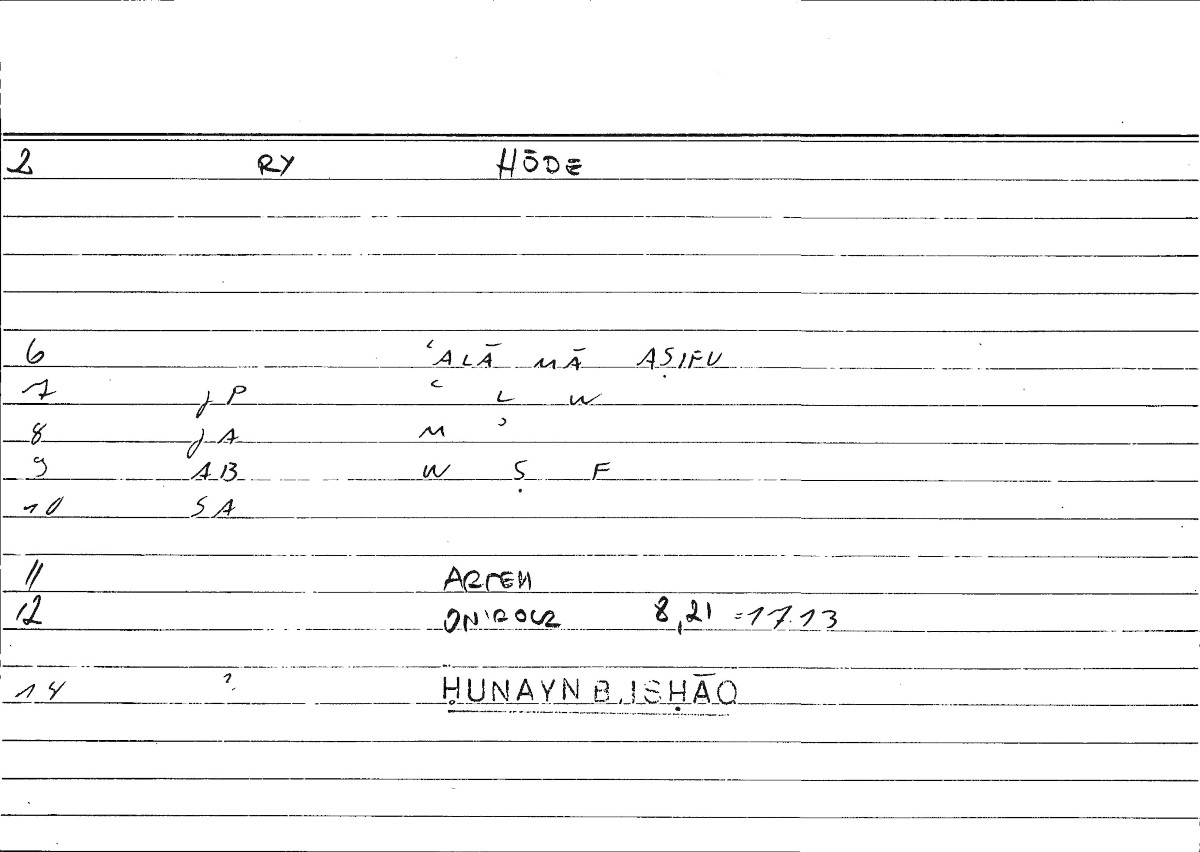 2 RY HŌDE
6 ʿALĀ MĀ AṢIFU
7 JP ʿ L W
8 JA M ʾ
9 AB W Ṣ F
10 SA
11 ARTEM
12 ONIROCR 8,21 =17.13
14 ? ḤUNAYN B.ISḤĀQ